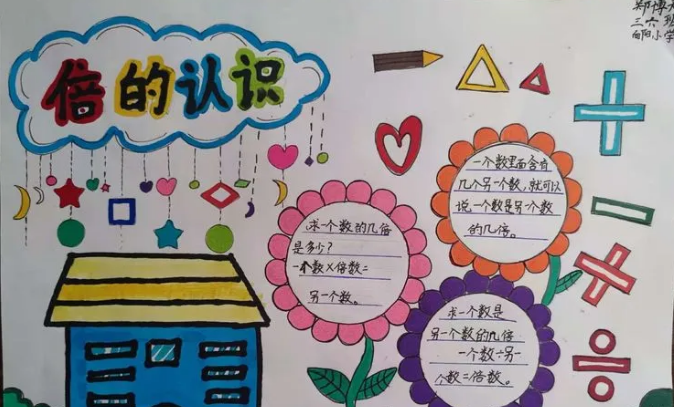 倍的认识
郑博
三六班
向阳小学
一个数里面含有
几个另一个数，就可以
说一个数是另一个数
的几倍。
求一个数的几倍
是多少？
一个数×倍数=
另一个数。
求一个数是
另一个数的几倍
一个数÷另一
个数=倍数。